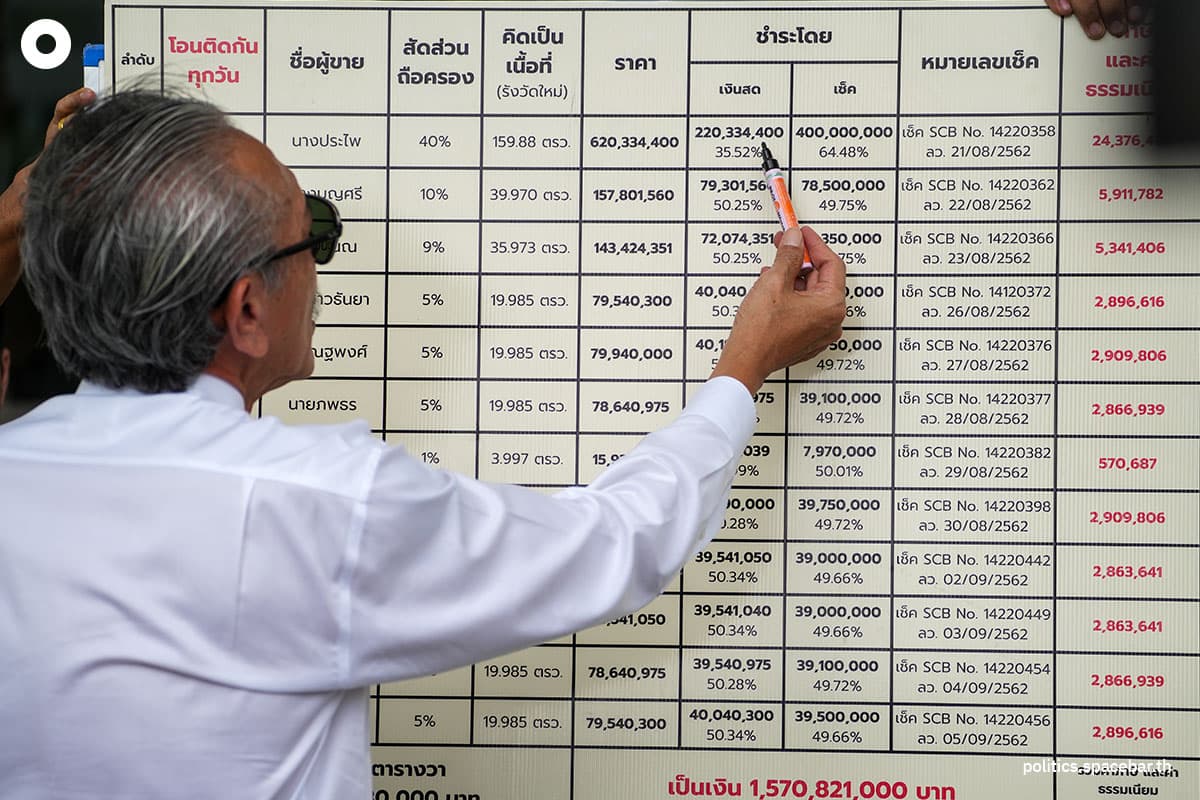 ลำดับ โอนติดกัน ชื่อผู้ขาย สัดส่วน คิดเป็น ราคา ชำระโดย หมายเลขเช็ค
ทุกวัน ถือครอง เนื้อที่ และค่า
(รังวัดใหม่) เงินสด เช็ค
นางประไพ 40% 159.88 ตรว. 620,334,400 220,334,400 400,000,000 เช็ค SCB No. 14220358
35.52% 64.48% ลว. 21/08/2562
บุญศรี 10% 39.970 ตรว. 157,801,560 78,500,000 เช็ค SCB No. 14220362 5,911,782
50.25% 49.75% ลว. 22/08/2562
9% 35.973 ตรว. 143,424,351 72,074,351 เช็ค SCB No. 14220366 5,341,406
50.25% ลว. 23/08/2562
5% 19.985 ตรว. 79,540,300 เช็ค SCB No. 14120372 2,896,616
ลว. 26/08/2562
5% 19.985 ตรว. 79,940,000 เช็ค SCB No. 14220376 2,909,806
49.72% ลว. 27/08/2562
นายภพธร 5% 19.985 ตรว. 78,640,975 39,100,000 เช็ค SCB No. 14220377 2,866,939
49.72% ลว. 28/08/2562
1% 3.997 ตรว. 7,970,000 เช็ค SCB No. 14220382 570,687
50.01% ลว. 29/08/2562
39,750,000 เช็ค SCB No. 14220398 2,909,806
49.72% ลว. 30/08/2562
39,541,050 39,000,000 เช็ค SCB No. 14220442 2,863,641
50.34% 49.66% ลว. 02/09/2562
39,541,040 39,000,000 เช็ค SCB No. 14220449 2,863,641
50.34% 49.66% ลว. 03/09/2562
19.985 ตรว. 78,640,975 39,540,975 39,100,000 เช็ค SCB No. 14220454 2,866,939
50.28% 49.72% ลว. 04/09/2562
5% 19.985 ตรว. 79,540,300 40,040,300 39,500,000 เช็ค SCB No. 14220456 2,896,616
50.34% 49.66% ลว. 05/09/2562
ตารางวา
บาท เป็นเงิน 1,570,821,000 บาท
ธรรมเนียม
politics.spacebar.th